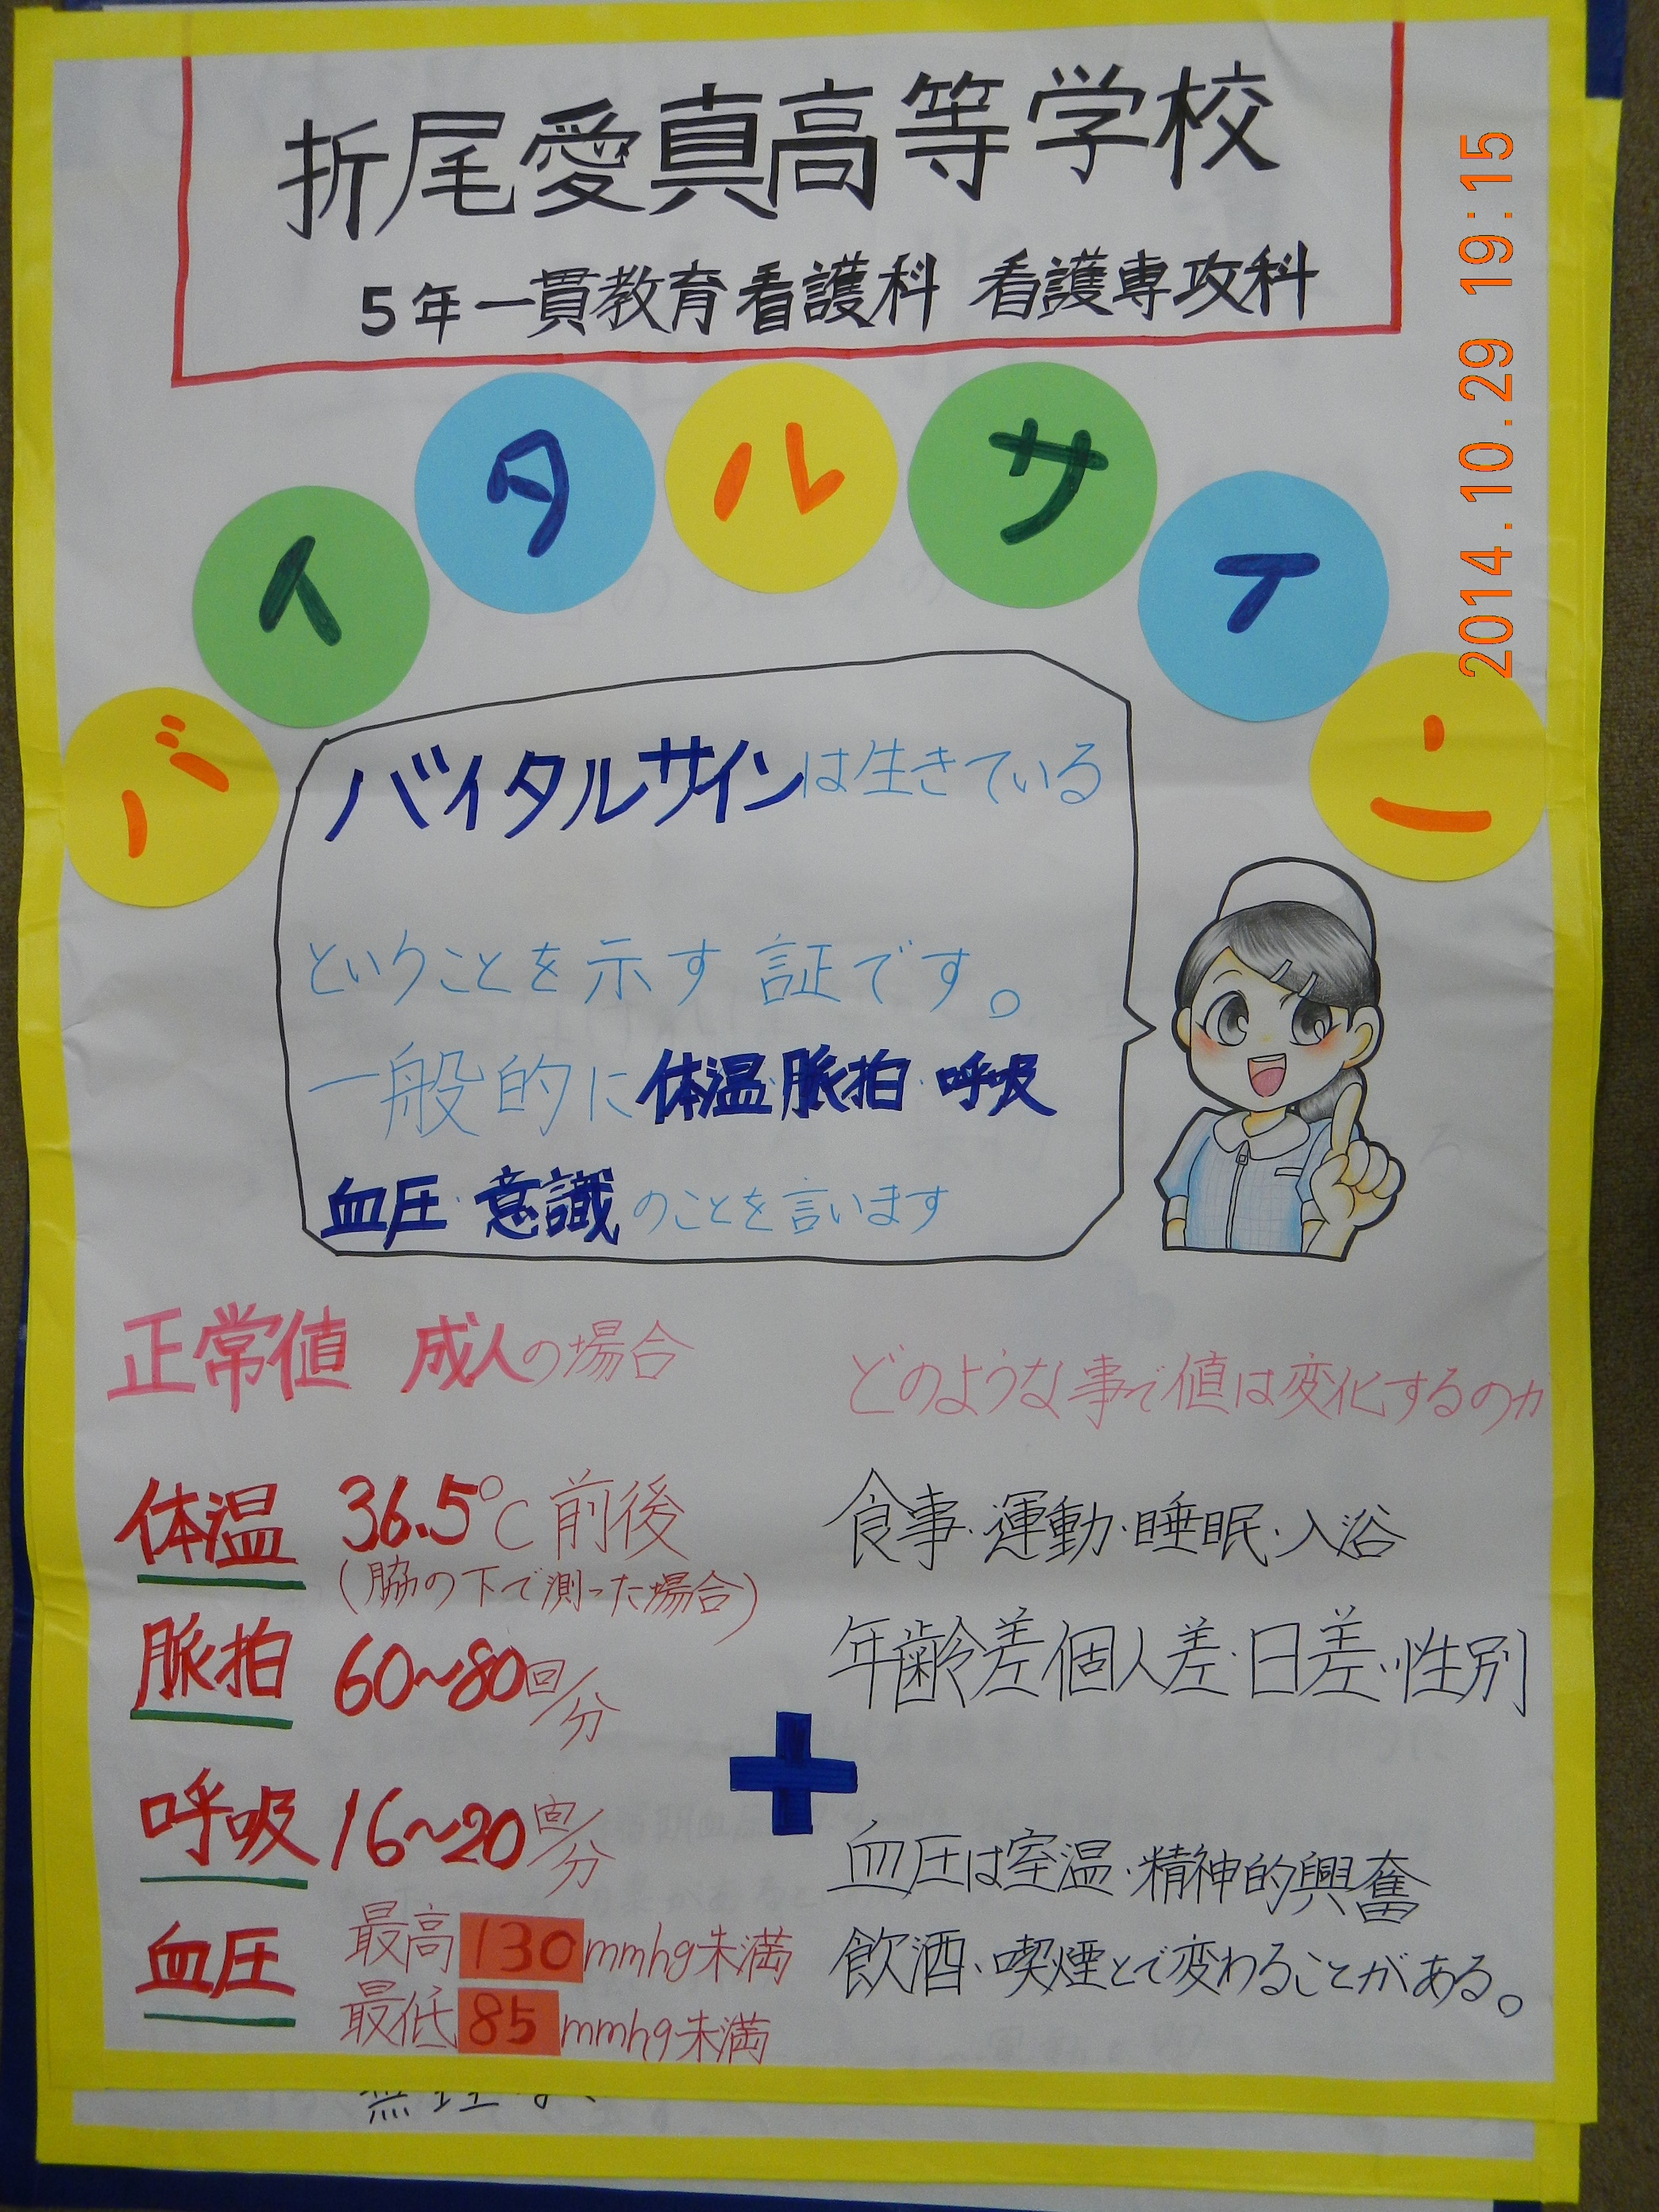 折尾愛真高等学校
5年一貫教育看護科 看護専攻科
バイタルサイン
バイタルサインは生きている
ということを示す 証です。
一般的に体温・脈拍・呼吸
血圧・意識のことを言います
正常値 成人の場合
体温 36.5℃前後
(脇の下で測った場合)
脈拍 60~80回/分
呼吸 16~20回/分
血圧 最高130mmhg未満
最低85mmhg未満
どのような事で値は変化するのか
食事・運動・睡眠・入浴
年齢差個人差・日差・性別
+
血圧は室温・精神的興奮
飲酒・喫煙とで変わることがある。
2014.10.29 19:15